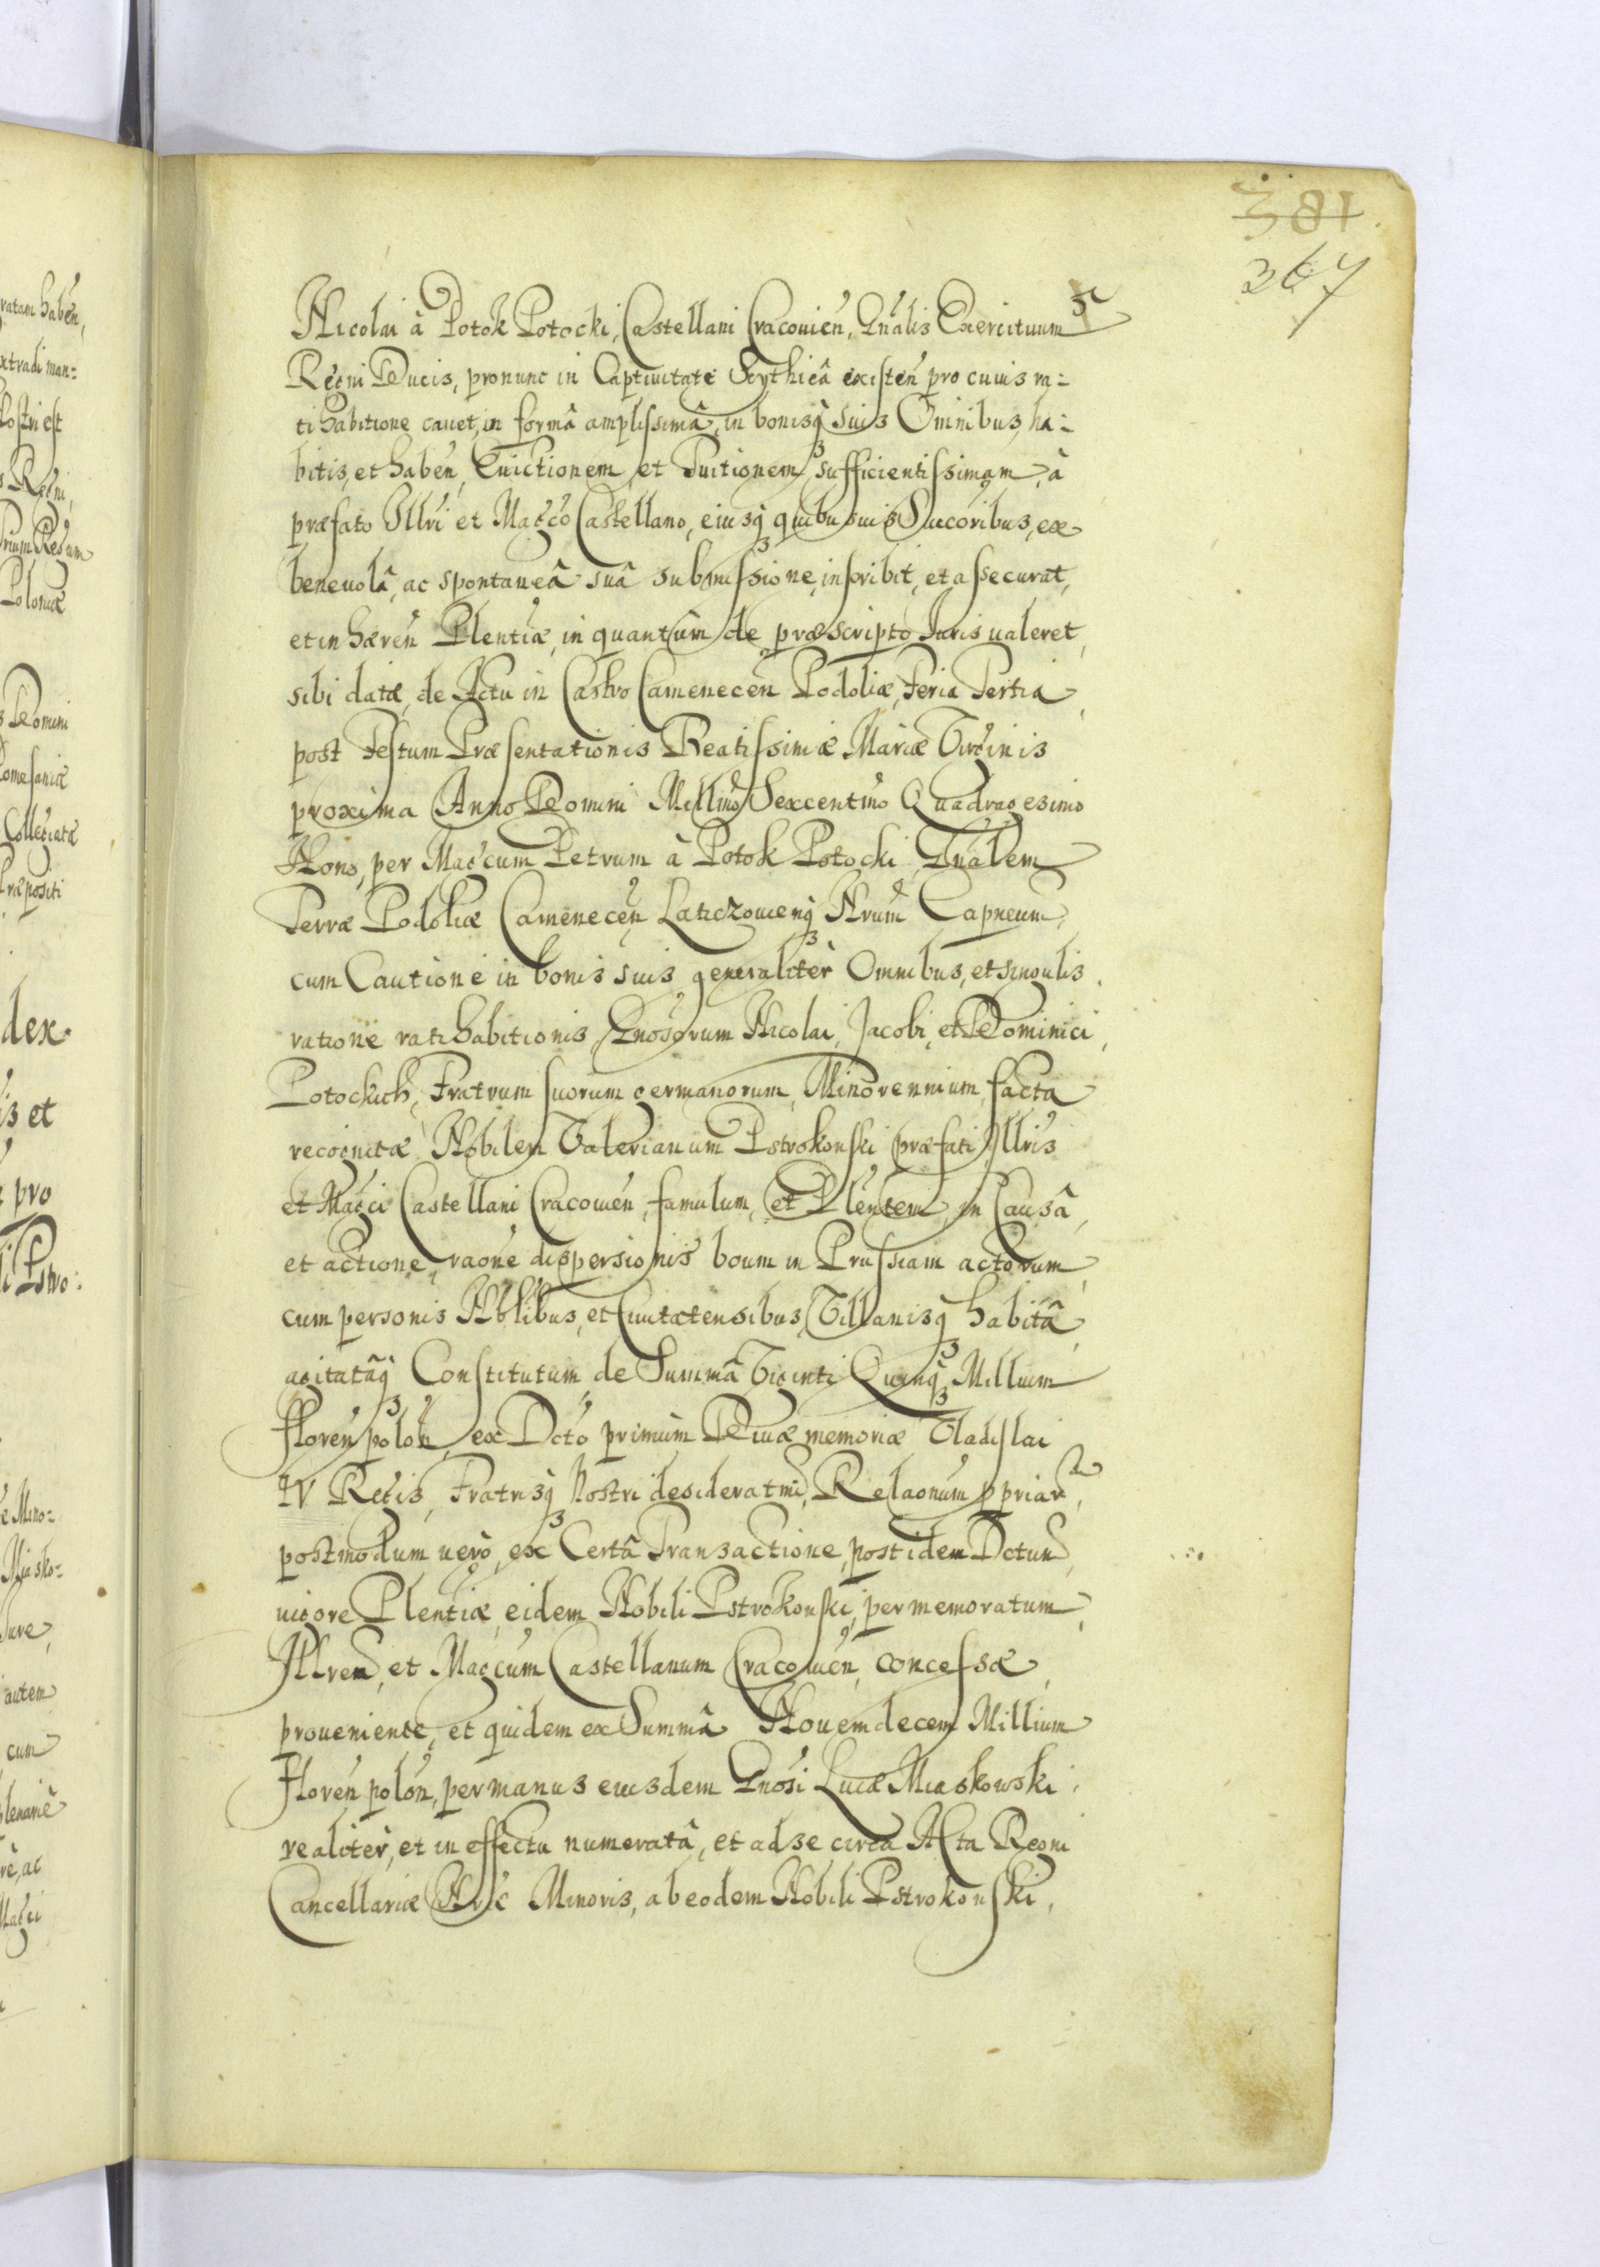 381
367
Nicolai à Potok Potocki, Castellani Cracouien, Gnalis Exercituum
Regni Ducis, pronunc in Captiuitate Scythicâ existen pro cuius ra-
tihabitione cauet, in formâ amplissimâ, in bonisq suis Omnibus, ha-
bitis, et haben, Euictionem, et Tuitionem, sufficientissimam, à
præfato Illri et Magco Castellano, eiusq quibusuis Succoribus, ex
beneuolâ, ac spontaneâ suâ submissione, inscribit, et assecurat,
et in hæren Plentiæ, in quantum de præscripto Iuris ualeret,
sibi datæ, de Actu in Castro Camenecen Podoliæ, Feria Tertia,
post Festum Præsentationis Beatissimæ Mariæ Virginis
proxima Anno Domini Millmo Sexcentmo Quadragesimo
Nono, per Magcum Petrum à Potok Potocki, Gnalem
Terræ Podoliæ Camenecen Laticzouienq Nrum Capneum,
cum Cautione in bonis suis generaliter Omnibus, et singulis
ratione ratihabitionis, Gnosorum Nicolai, Jacobi, et Dominici,
Potockich, Fratrum suorum germanorum, Minorennium, facta
recognitæ Nobilem Valerianum Pstrokonski præfati Illris
et Magci Castellani Cracouien, famulum, et Plentem, in Causâ,
et actione, raone dispersionis boum in Prussiam actorum,
cum personis Nblibus, et Ciuitatensibus, Villanisq habitâ,
agitatâq Constitutum de Summâ Viginti Quinq Millium
floren polon, ex Dcto primum Diuæ memoriæ Vladislai
IV Regis, Fratrisq Nostri desideratmi, Relaonum ppriar,
postmodum uero, ex Certâ Transactione, post idem Dctum
uigore Plentiæ, eidem Nobili Pstrokonski, per memoratum,
Illrem, et Magcum Castellanum Cracouien, concessæ,
proueniente, et quidem ex Summâ Nouemdecem Millium
floren polon, per manus eiusdem Gnosi Lucæ Miaskowski
realiter, et in effectu numeratâ, et ad se circa Acta Regni
Cancellariæ Nræ Minoris, ab eodem Nobili Pstrokonski,